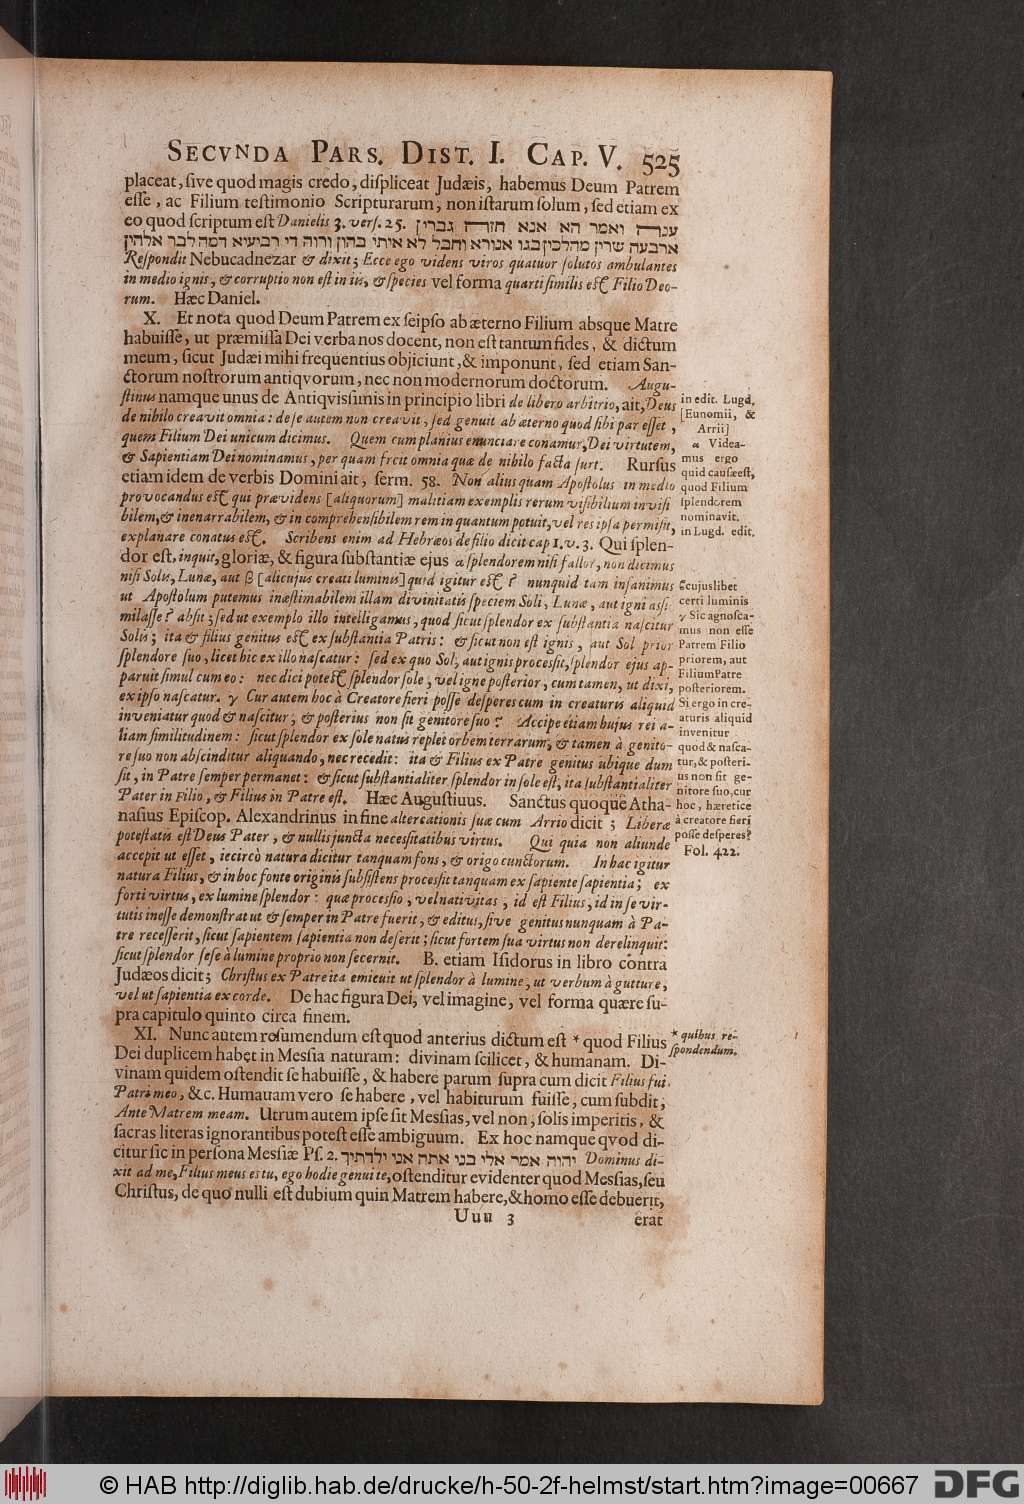 SECVNDA PARS. DIST. I. CAP. V. 525
placeat, sive quod magis credo, displiceat Judæis, habemus Deum Patrem
esse, ac Filium testimonio Scripturarum, non istarum solum, sed etiam ex
eo quod scriptum est Danielis 3. vers. 25. ענה ואמר הא אנא חזה גברין
ארבעה שרין מהלכין בגו אנורא וחבל לא איתי בהון ורוה די רביעיא דמה לבר אלהין
Respondit Nebucadnezar & dixit; Ecce ego videns viros quatuor solutos ambulantes
in medio ignis, & corruptio non est in iis, & species vel forma quarti similis est Filio Deo-
rum. Hæc Daniel.
X. Et nota quod Deum Patrem ex seipso ab æterno Filium absque Matre
habuisse, ut præmissa Dei verba nos docent, non est tantum fides, & dictum
meum, sicut Judæi mihi frequentius objiciunt, & imponunt, sed etiam San-
ctorum nostrorum antiqvorum, nec non modernorum doctorum. Augu-
stinus namque unus de Antiqvissimis in principio libri de libero arbitrio, ait, Deus
de nihilo creavit omnia: de se autem non creavit, sed genuit ab æterno quod sibi par esset,
quem Filium Dei unicum dicimus. Quem cum planius enunciare conamur, Dei virtutem,
& Sapientiam Dei nominamus, per quam fecit omnia quæ de nihilo facta sunt. Rursus
etiam idem de verbis Domini ait, serm. 58. Non alius quam Apostolus in medio
provocandus est qui prævidens [aliquorum] malitiam exemplis rerum visibilium invisi
bilem, & inenarrabilem, & in comprehensibilem rem in quantum potuit, vel res ipsa permisit,
explanare conatus est. Scribens enim ad Hebræos de filio dicit cap 1. v. 3. Qui splen-
dor est, inquit, gloriæ, & figura substantiæ ejus α splendorem nisi fallor, non dicimus
nisi Solis, Lunæ, aut β [alicujus creati luminis] quid igitur est? nunquid tam insanimus
ut Apostolum putemus inæstimabilem illam divinitatis speciem Soli, Lunæ, aut igni assi
milasse? absit; sed ut exemplo illo intelligamus, quod sicut splendor ex substantia nascitur
Solis; ita & filius genitus est ex substantia Patris: & sicut non est ignis, aut Sol prior
splendore suo, licet hic ex illo nascatur: sed ex quo Sol, aut ignis processit, splendor ejus ap-
paruit simul cum eo: nec dici potest splendor sole, vel igne posterior, cum tamen, ut dixi,
ex ipso nascatur. γ Cur autem hoc à Creatore fieri posse desperes cum in creaturis aliquid
inveniatur quod & nascitur, & posterius non sit genitore suo? Accipe etiam hujus rei a-
liam similitudinem: sicut splendor ex sole natus replet orbem terrarum, & tamen à genito-
re suo non abscinditur aliquando, nec recedit: ita & Filius ex Patre genitus ubique dum
sit, in Patre semper permanet: & sicut substantialiter splendor in sole est, ita substantialiter
Pater in Filio, & Filius in Patre est. Hæc Augustiuus. Sanctus quoque Atha-
nasius Episcop. Alexandrinus in fine altercationis suæ cum Arrio dicit; Liberæ
potestatis est Deus Pater, & nullis juncta necessitatibus virtus. Qui quia non aliunde
accepit ut esset, iecircò natura dicitur tanquam fons, & origo cunctorum. In hac igitur
natura Filius, & in hoc fonte originis subsistens processit tanquam ex sapiente sapientia; ex
forti virtus, ex lumine splendor: quæ processio, vel nativitas, id est Filius, id in se vir-
tutis inesse demonstrat ut & semper in Patre fuerit, & editus, sive genitus nunquam à Pa-
tre recesserit, sicut sapientem sapientia non deserit; sicut fortem sua virtus non derelinquit:
sicut splendor sese à lumine proprio non secernit. B. etiam Isidorus in libro contra
Judæos dicit; Christus ex Patre ita emicuit ut splendor à lumine, ut verbum à gutture,
vel ut sapientia ex corde. De hac figura Dei, vel imagine, vel forma quære su-
pra capitulo quinto circa finem.
XI. Nunc autem resumendum est quod anterius dictum est * quod Filius
Dei duplicem habet in Messia naturam: divinam scilicet, & humanam. Di-
vinam quidem ostendit se habuisse, & habere parum supra cum dicit Filius fui
Patri meo, &c. Humauam vero se habere, vel habiturum fuisse, cum subdit,
Ante Matrem meam. Utrum autem ipse sit Messias, vel non, solis imperitis, &
sacras literas ignorantibus potest esse ambiguum. Ex hoc namque qvod di-
citur sic in persona Messiæ Ps. 2. יהוה אמר אלי בני אתה אני ילדתיך Dominus di-
xit ad me, Filius meus es tu, ego hodie genui te, ostenditur evidenter quod Messias, seu
Christus, de quo nulli est dubium quin Matrem habere, & homo esse debuerit,
Uuu 3 erat
in edit. Lugd.
[Eunomii, &
Arrii]
α Videa-
mus ergo
quid causæ est,
quod Filium
splendorem
nominavit.
in Lugd. edit.
β cujuslibet
certi luminis
γ Sic agnosca-
mus non esse
Patrem Filio
priorem, aut
Filium Patre
posteriorem.
Si ergo in cre-
aturis aliquid
invenitur
quod & nasca-
tur, & posteri-
us non sit ge-
nitore suo, cur
hoc, hæretice
à creatore fieri
posse desperes?
Fol. 422.
* quibus re-
spondendum.
© HAB http://diglib.hab.de/drucke/h-50-2f-helmst/start.htm?image=00667 DFG